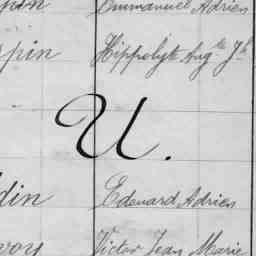 pin Emmanuel Adrien
pin Hippolyte Aug.te J.h
U.
din Edouard Adrien
voy Victor Jean Marie